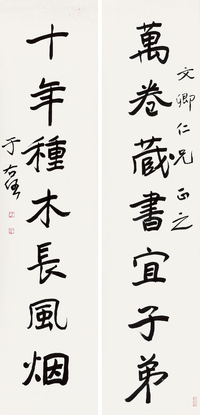 文卿仁兄正之
萬卷藏書宜子弟
十年種木長風烟
于右任